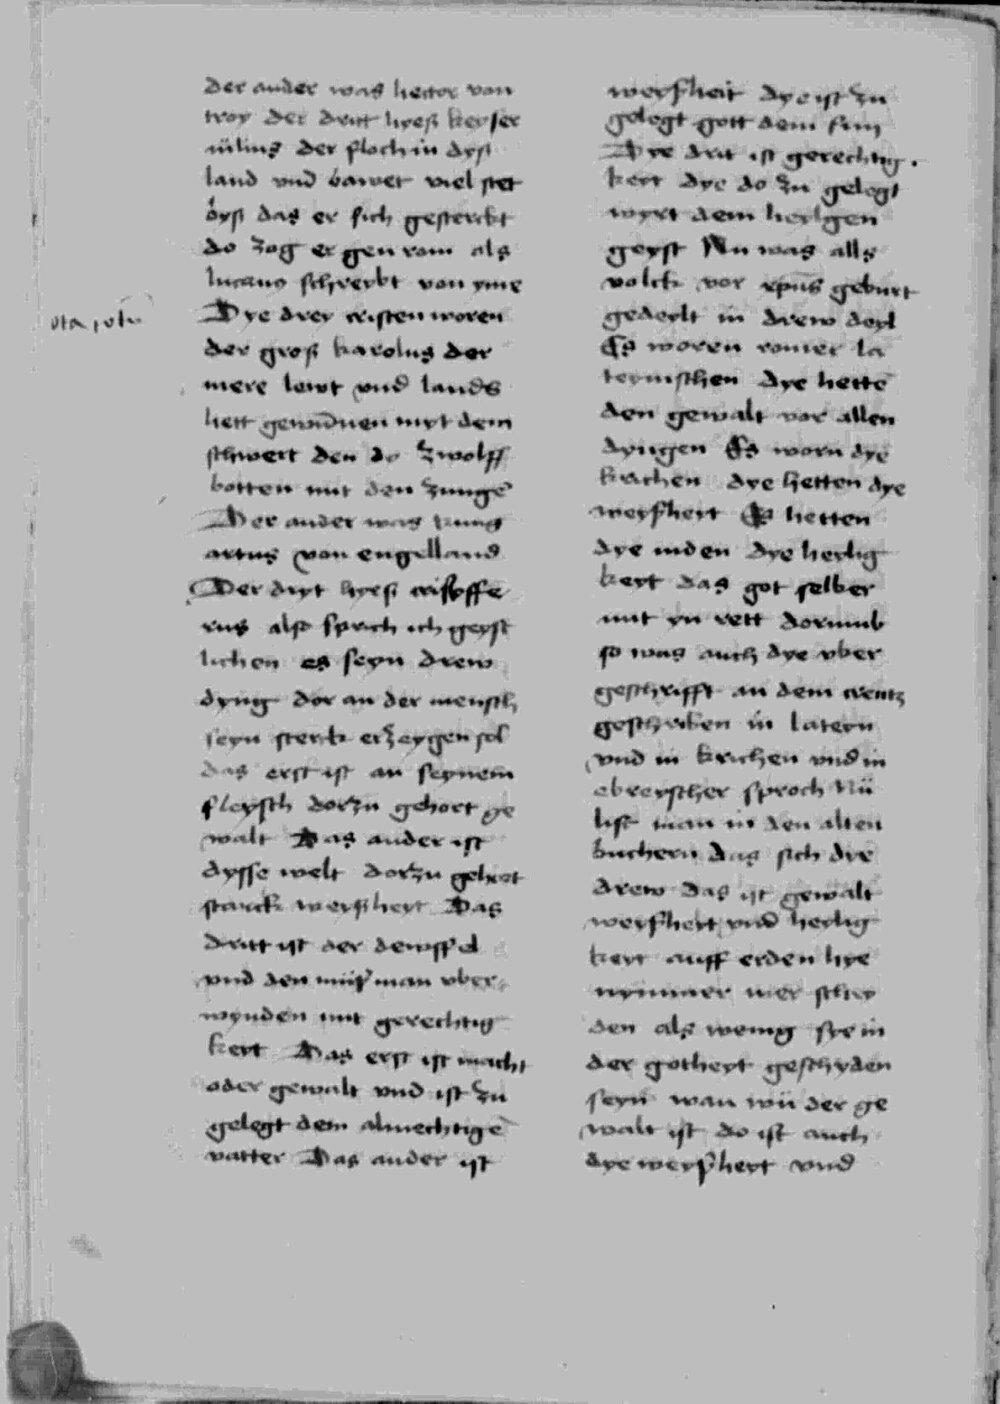 der ander was hector von
troy der dritt hyeß keyser
iulius der floch in dyß
land vnd bawet viel stet
byß das er sich gesterckt
do zog er gen rom als
lucanus schreybt von yme
Dye drey cristen woren
der groß karolus der
mere lewt vnd lands
hett gewunnen myt dem
schwert den do zwolff
botten mit den zungē
Der ander was kunig
artus von engelland
Der dryt hyeß cristofffe
rus also sprich ich geyst
lichen es seyn drew
dyng dor an der mensch
seyn sterck erzeygen sol
das erst ist an seynem
fleysch dorzu gehort ge
walt Das ander ist
dysse welt dorzu gehort
starck weyßheyt Das
dritt ist der dewffel
vnd den muß man vber
wynden mit gerechtig
keyt Das erst ist macht
oder gewalt vnd ist zu
gelegt dem almechtigē
vatter Das ander ist
weyßheit dye ist zu
gelegt gott dem sun
Dye drit ist gerechtig
keyt dye do zu gelegt
wyrt dem heylgen
geyst Nu was alls
volck vor xpūs geburt
gedeylt in drew deyl
Es woren romer la
teynischen dye hettē
den gewalt vor allen
dyngen Es worn dye
krichen dye hetten dye
weyßheyt Es hetten
dye iuden dye heylig
keyt das got selber
mit yn rett dorumb
so was auch dye vber
geschrifft an dem crentz
geschriben in lateyn
vnd in krichen vnd in
ebreyscher sproch Nū
list man in den alten
buchern das sich dye
drew das ist gewalt
weyßheyt vnd heylig
keyt auff erden hye
nymmer mer schey
den als wenig sye in
der gotheyt geschyden
seyn wan wū der ge
walt ist do ist auch
dye weyßheyt vnd